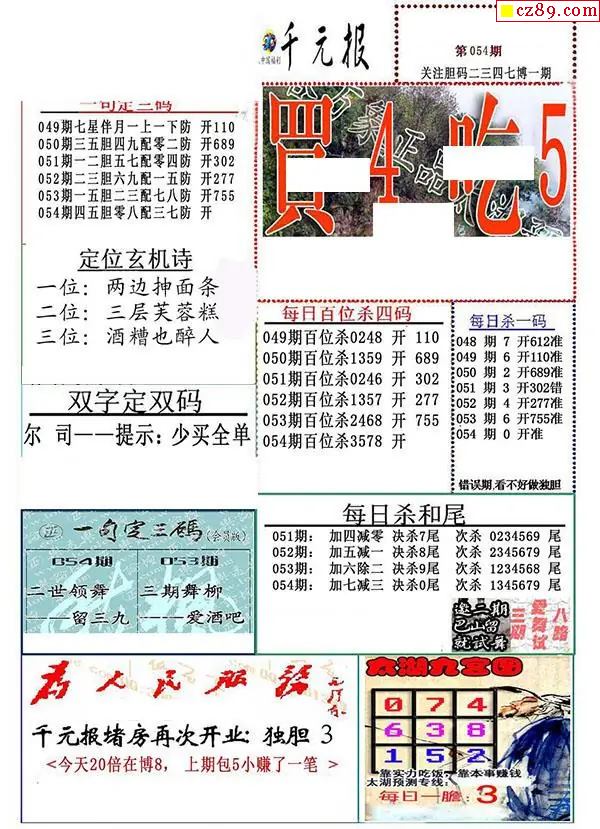 cz89.com
中国福利
千元报
第054期
关注胆码二三四七博一期
一句定三码
049期七星伴月一上一下防 开110
050期三五胆四九配零二防 开689
051期一二胆五七配零四防 开302
052期二三胆六九配一五防 开277
053期一五胆二三配七八防 开755
054期四五胆零八配三七防 开
買4吃5
定位玄机诗
一位：两边抻面条
二位：三层芙蓉糕
三位：酒糟也醉人
每日百位杀四码
049期百位杀0248 开 110
050期百位杀1359 开 689
051期百位杀0246 开 302
052期百位杀1357 开 277
053期百位杀2468 开 755
054期百位杀3578 开
每日杀一码
048 期 7 开612准
049 期 6 开110准
050 期 2 开689准
051 期 3 开302错
052 期 4 开277准
053 期 6 开755准
054 期 0 开准
错误期,看不好做独胆
双字定双码
尔 司——提示：少买全单
一句定三碼(会员版)
054期
二世领舞
——留三九
053期
三期舞柳
——爱酒吧
每日杀和尾
051期： 加四减零 决杀7尾 次杀 0234569 尾
052期： 加五减一 决杀8尾 次杀 2345679 尾
053期： 加六除二 决杀9尾 次杀 1234568 尾
054期： 加七减三 决杀0尾 次杀 1345679 尾
邀二期
已山留
就武舞
三湖
爱舞试
八路
为人民服务
千元报堵房再次开业：独胆 3
<今天20倍在博8， 上期包5小赚了一笔 >
太湖九宫图
0 7 4
6 3 8
1 5 2
靠实力吃饭 靠本事赚钱
太湖预测专线：
每日一胆：3